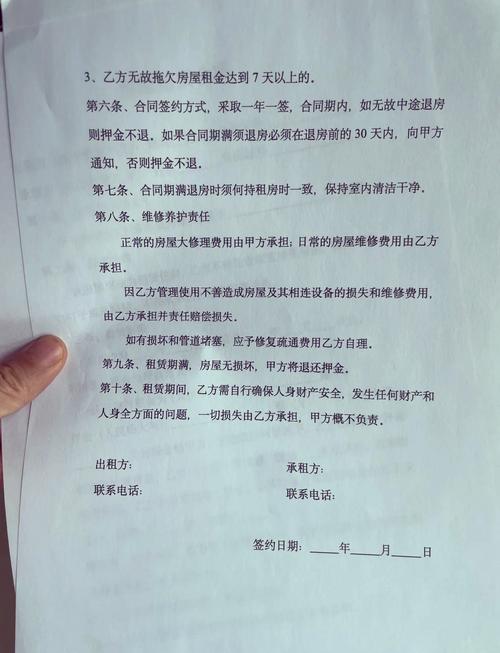 3、乙方无故拖欠房屋租金达到 7 天以上的。
第六条、合同签约方式，采取一年一签，合同期内，如无故中途退房
则押金不退。如果合同期满须退房必须在退房前的 30 天内，向甲方
通知，否则押金不退。
第七条、合同期满退房时须何持租房时一致，保持室内清洁干净。
第八条、维修养护责任
正常的房屋大修理费用由甲方承担；日常的房屋维修费用由乙方
承担。
因乙方管理使用不善造成房屋及其相连设备的损失和维修费用，
由乙方承担并责任赔偿损失。
如有损坏和管道堵塞，应予修复疏通费用乙方自理。
第九条、租赁期满，房屋无损坏，甲方将退还押金。
第十条、租赁期间，乙方需自行确保人身财产安全，发生任何财产和
人身全方面的问题，一切损失由乙方承担，甲方概不负责。
出租方： 承租方：
联系电话： 联系电话：
签约日期：_____年_____月_____日